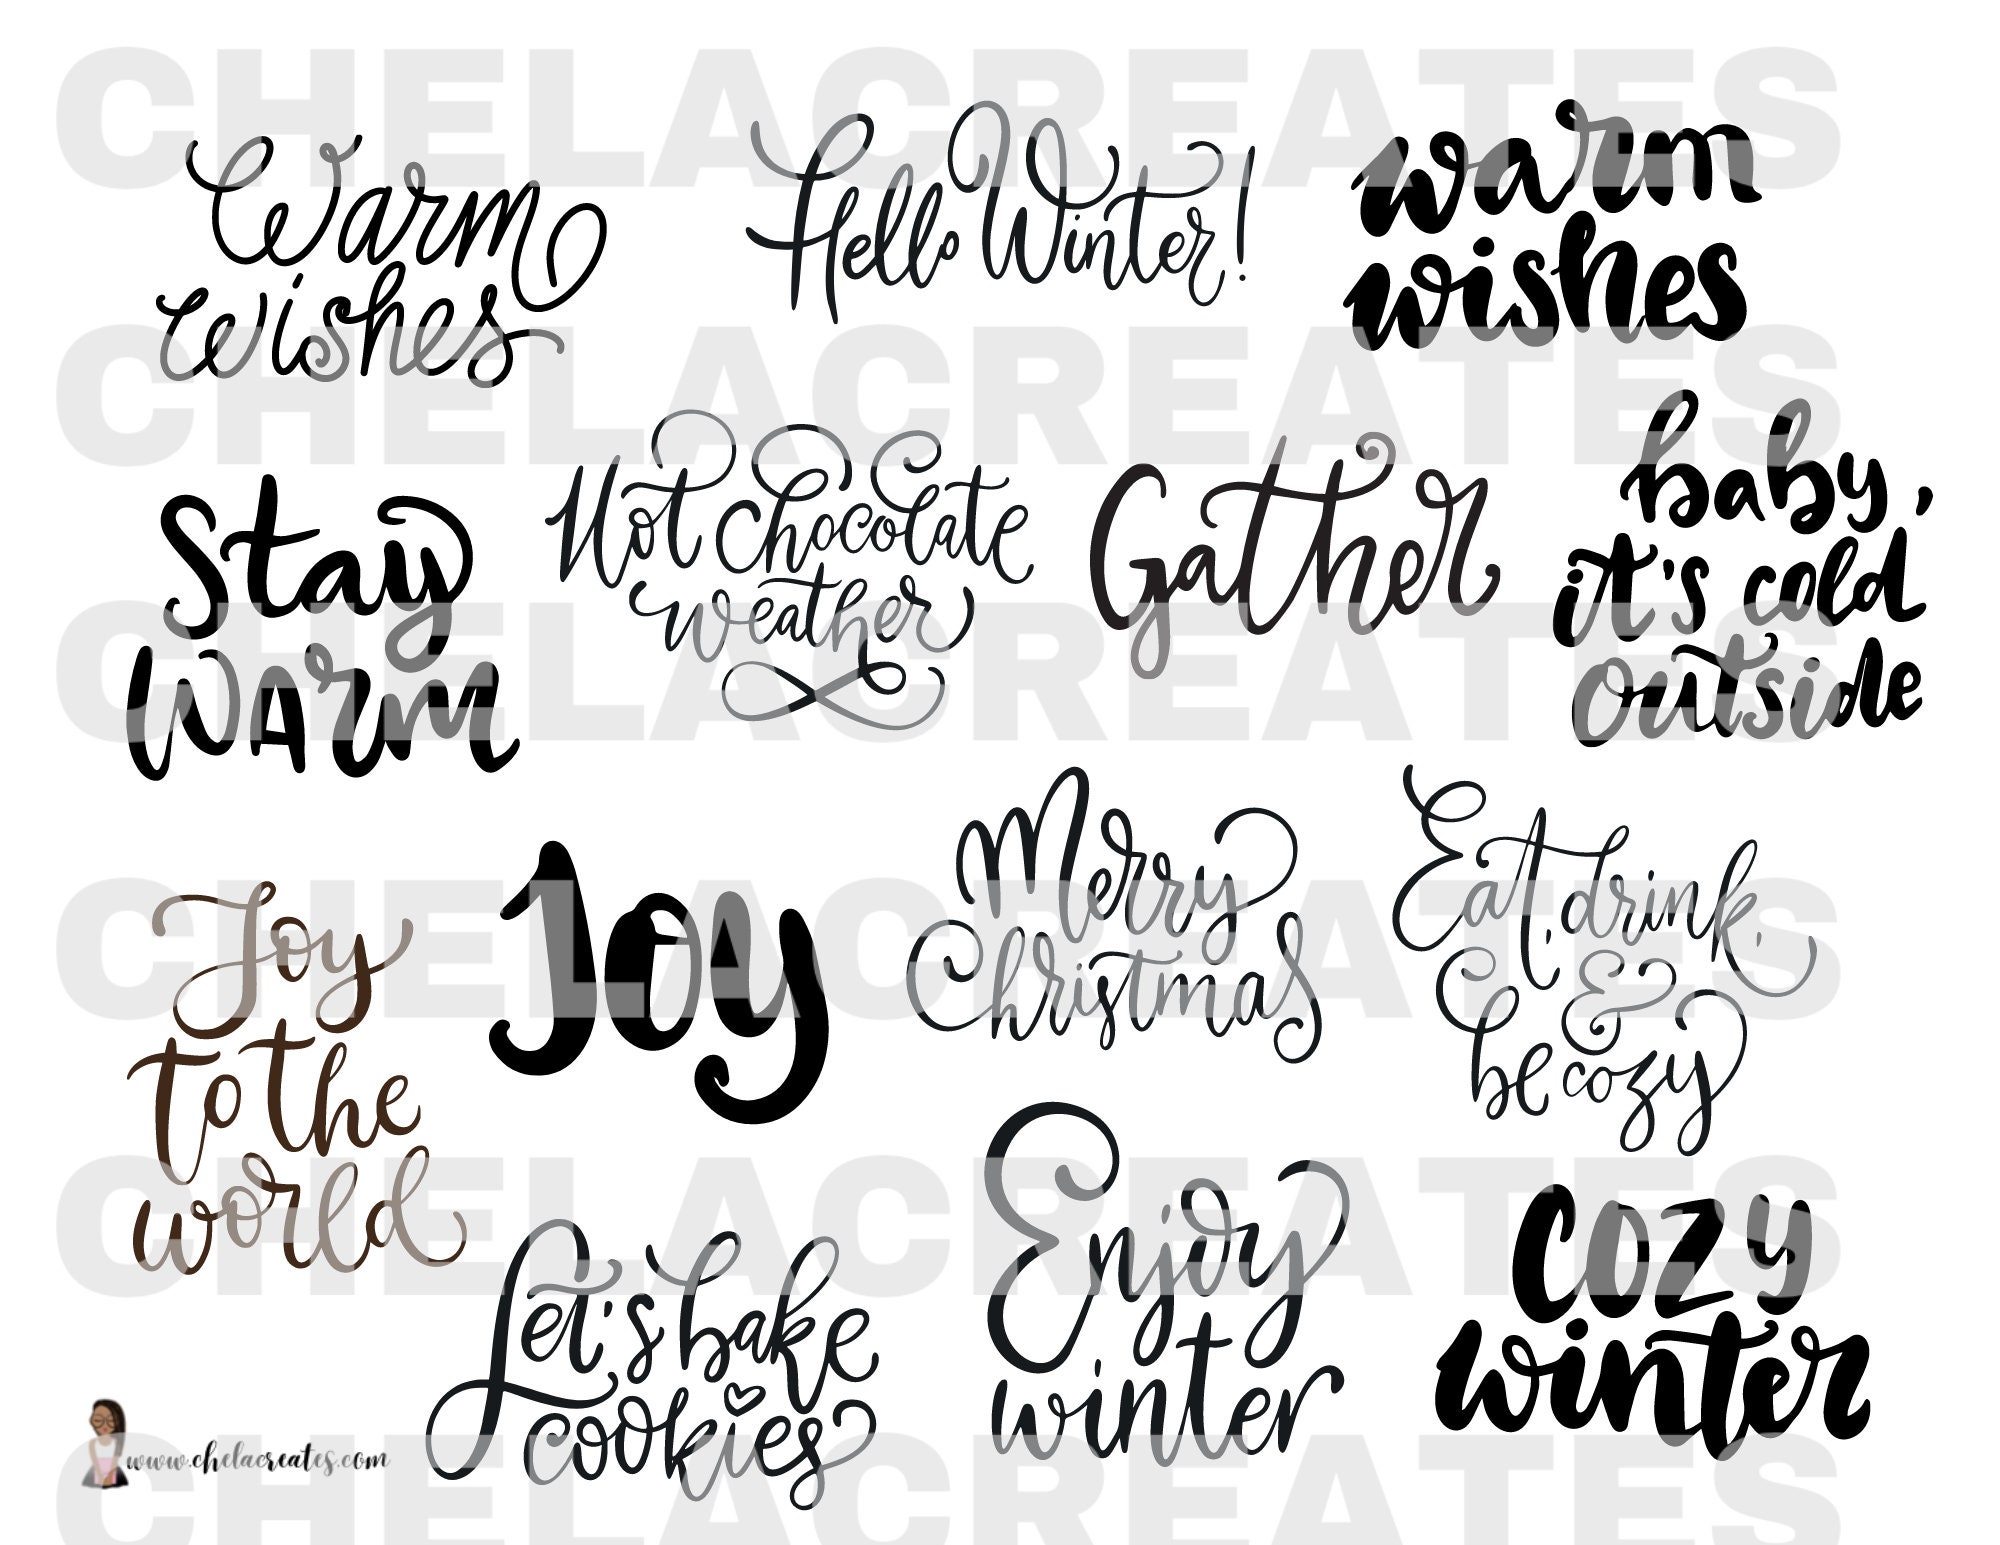 CHELACREATES
Warm
wishes
Hello Winter!
warm
wishes
CHELACREATES
Stay
warm
Hot Chocolate
weather
Gather
baby,
it's cold
outside
CHELACREATES
Joy
to the
world
Joy
Merry
Christmas
Eat, drink,
&
be cozy
CHELACREATES
Let's bake
cookies
Enjoy
winter
cozy
winter
CHELACREATES
www.chelacreates.com
CHELACREATES